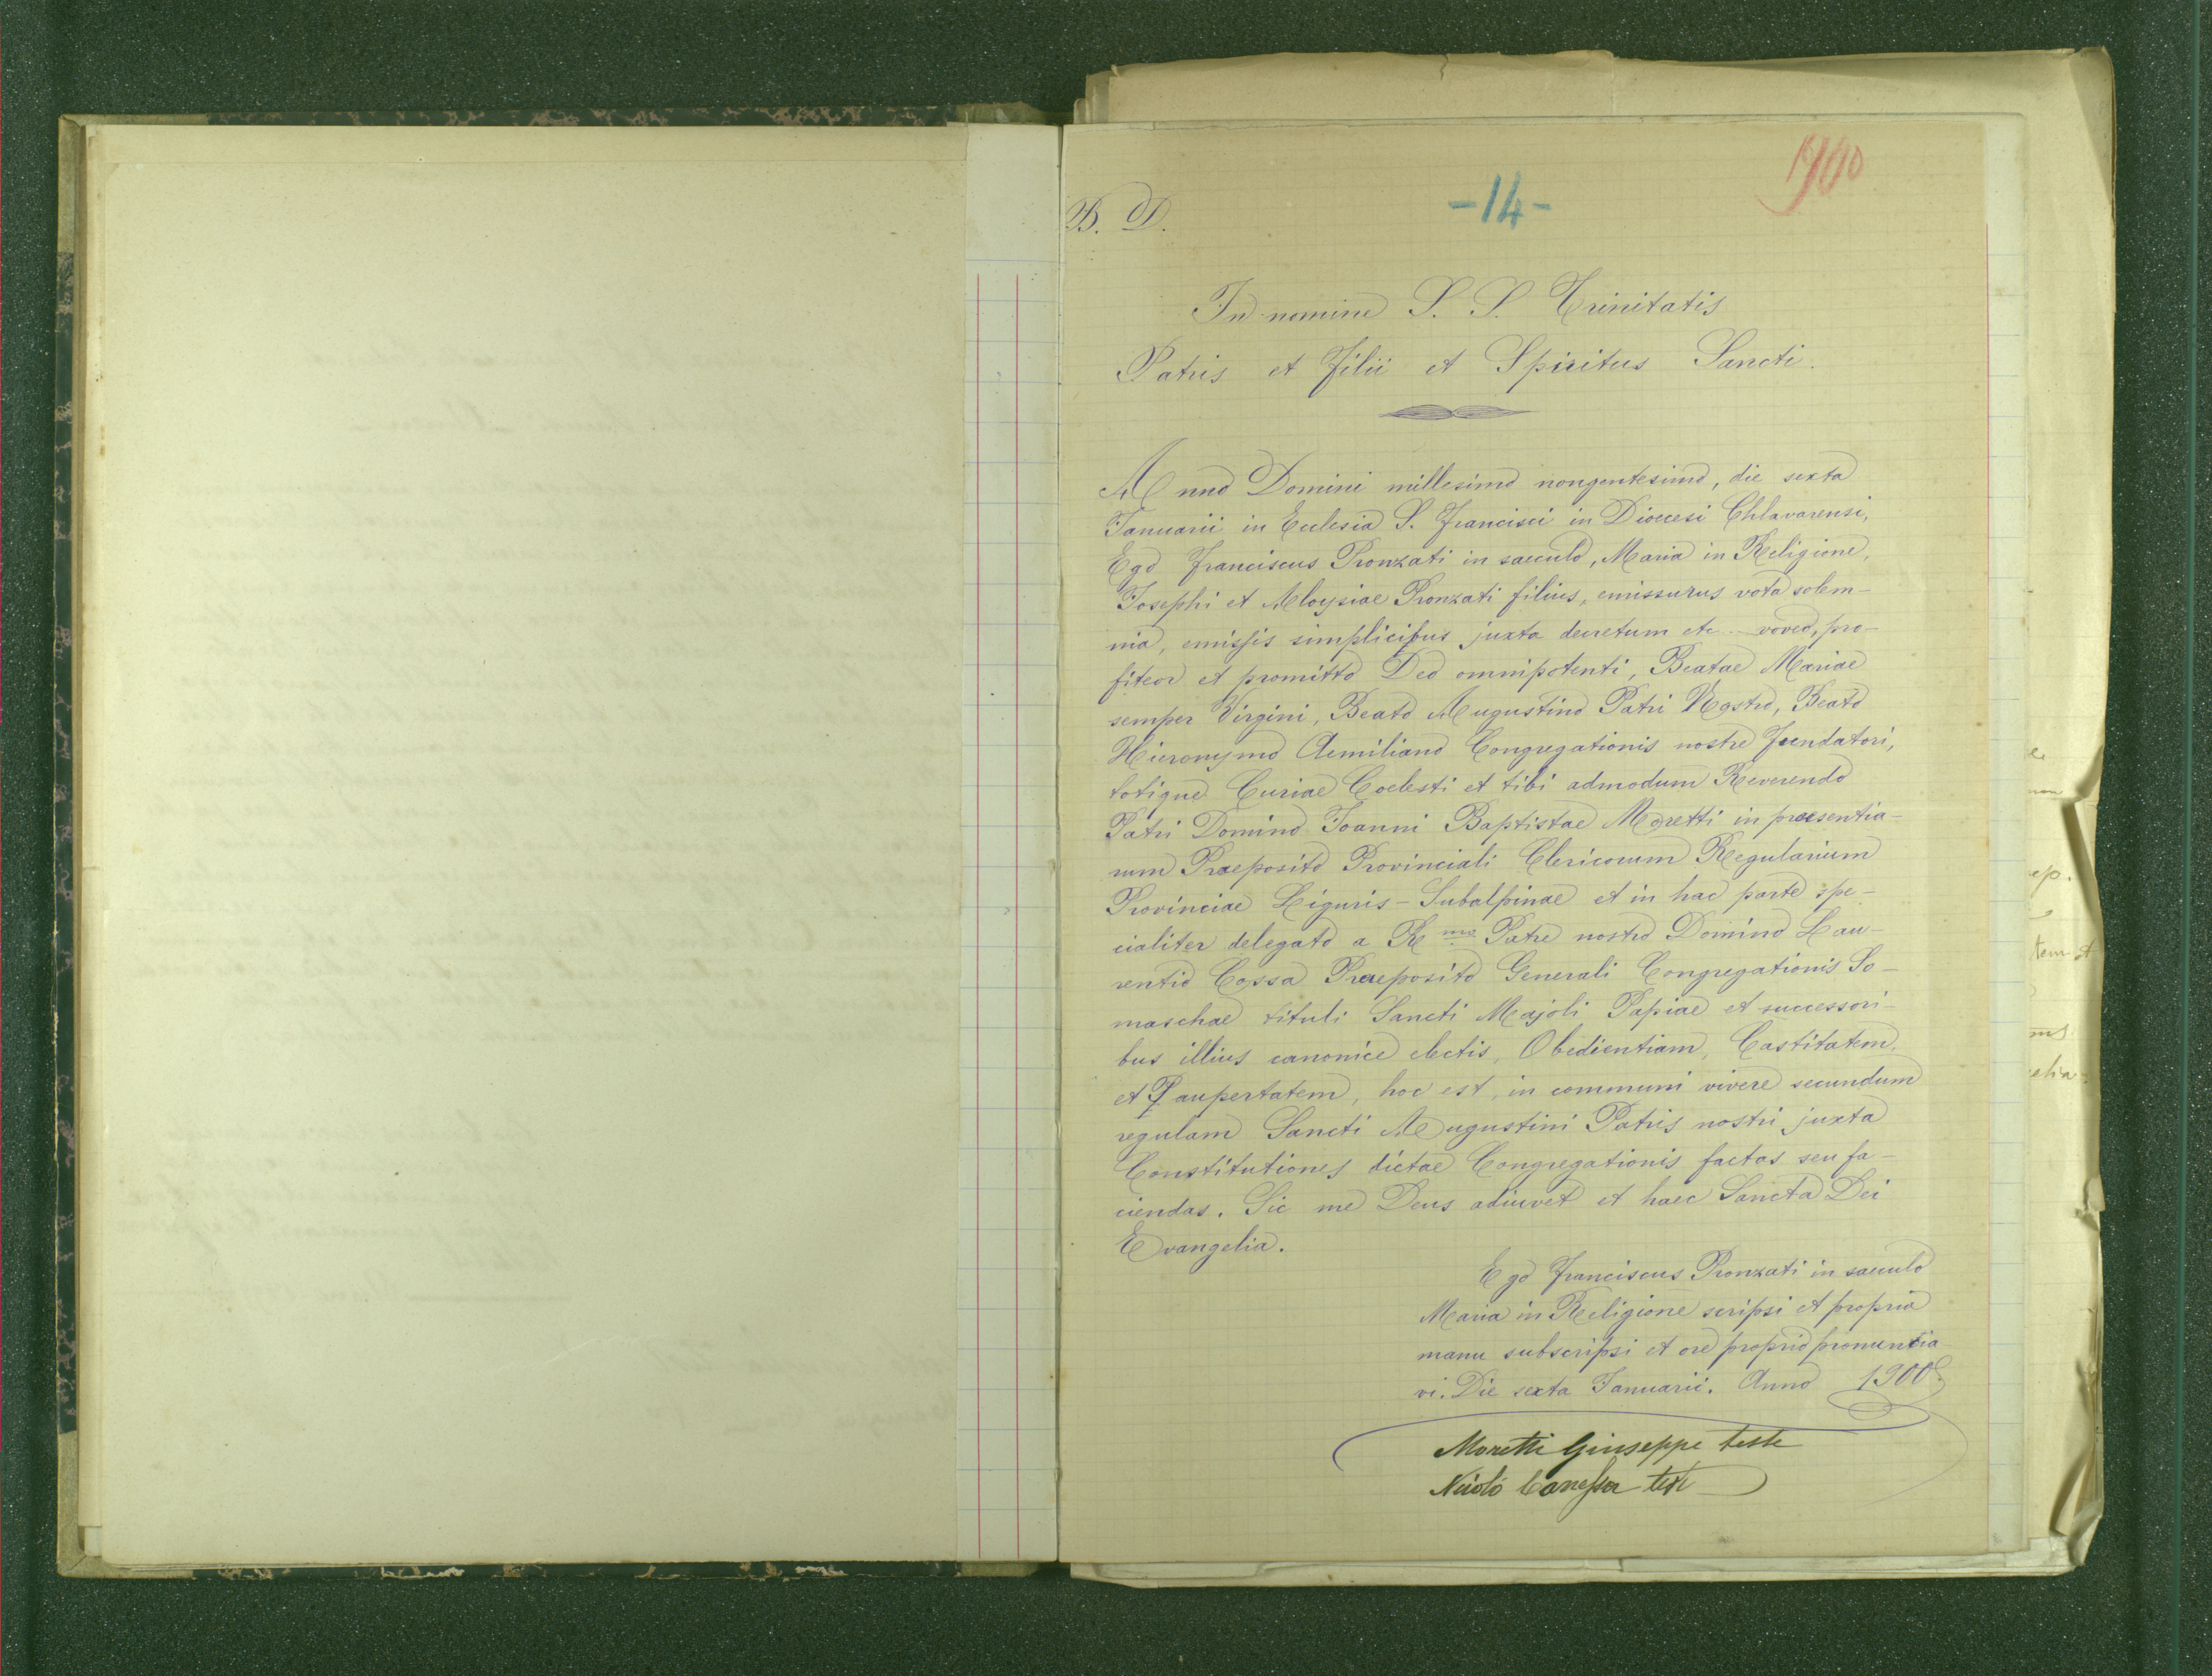 1900
-14-
B. D.
In nomine S. S. Trinitatis
Patris et Filii et Spiritus Sancti.
Anno Domini millesimo nongentesimo, die sexta
Januarii in Ecclesia S. Francisci in Dioecesi Chlavarensi,
Ego Franciscus Pronzati in saeculo, Maria in Religione,
Josephi et Aloysiae Pronzati filius, emissurus vota solem-
nia, emissis simplicibus juxta decretum etc... voveo, pro-
fiteor et promitto Deo omnipotenti, Beatae Mariae
semper Virgini, Beato Augustino Patri Nostro, Beato
Hieronymo Aemiliano Congregationis nostre Fundatori,
totique Curiae Coelesti et tibi admodum Reverendo
Patri Domino Joanni Baptistae Moretti in praesentia-
rum Praeposito Provinciali Clericorum Regularium
Provinciae Liguris-Subalpinae et in hac parte spe-
cialiter delegato a Rmo Patre nostro Domino Lau-
rentio Cossa Praeposito Generali Congregationis So-
maschae tituli Sancti Majoli Papiae et successori-
bus illius canonice electis, Obedientiam, Castitatem,
et Paupertatem, hoc est, in communi vivere secundum
regulam Sancti Augustini Patris nostri juxta
Constitutiones dictae Congregationis factas seu fa-
ciendas. Sic me Deus adiuvet et haec Sancta Dei
Evangelia.
Ego Franciscus Pronzati in saeculo
Maria in Religione scripsi et propria
manu subscripsi et ore proprio pronuntia
vi. Die sexta Januarii. Anno 1900.
Moretti Giuseppe teste
Nicolò Canessa test